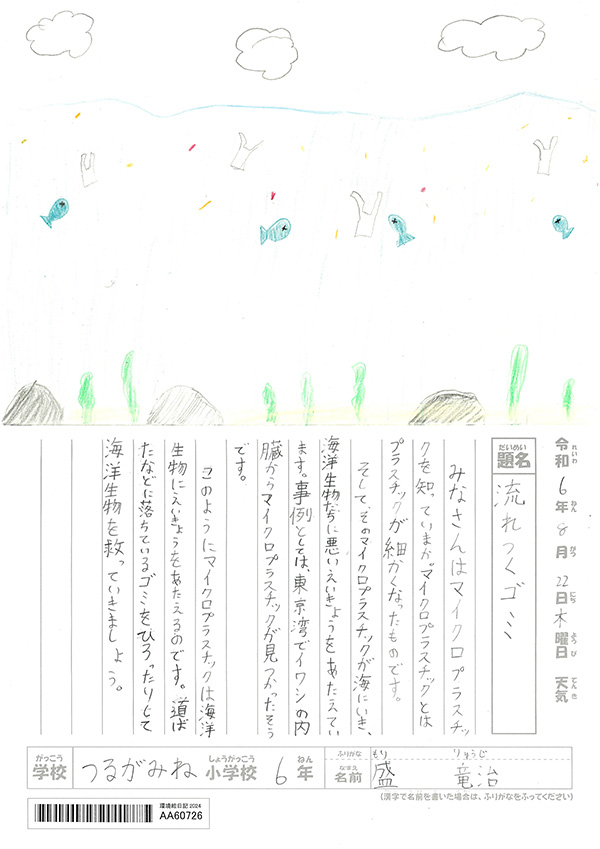 令和6年8月22日木曜日 天気
れいわ ねん がつ にち ようび てんき
だいめい
題名 流れつくゴミ
みなさんはマイクロプラスチッ
クを知っていますか。マイクロプラスチックとは
プラスチックが細かくなったものです。
そして、そのマイクロプラスチックが海にいき、
海洋生物たちに悪いえいきょうをあたえてい
ます。事例としては、東京湾でイワシの内
臓からマイクロプラスチックが見つかったそう
です。
このようにマイクロプラスチックは海洋
生物にえいきょうをあたえるのです。道ば
たなどに落ちているゴミをひろったりして
海洋生物を救っていきましょう。
がっこう しょうがっこう ねん
学校 つるがみね小学校 6年
ふりがな もり りゅうじ
なまえ
名前 盛 竜治
(漢字で名前を書いた場合は、ふりがなをふってください)
環境絵日記 2024
AA60726